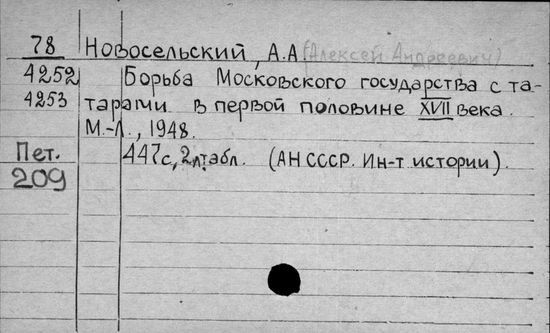 78 Новосельский, А.А (Алексей Андреевич)
4252 Борьба Московского государства с та-
4253 тарами в первой половине XVII века.
М.-Л., 1948.
Пет. 447с, 2л.табл. (АН СССР. Ин-т истории).
209